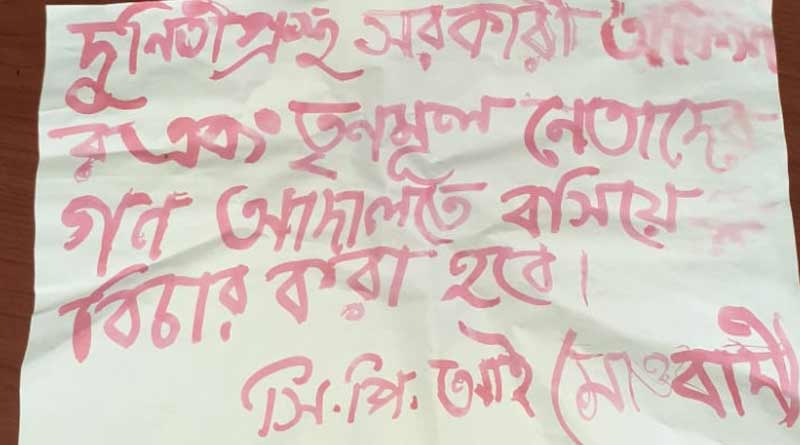 দুনিতীগ্রস্থ সরকারী অফিসা
র এবং তৃনমূল নেতাদের
গণ আদালতে বসিয়ে
বিচার করা হবে।
সি.পি.আই (মাওবাদী)